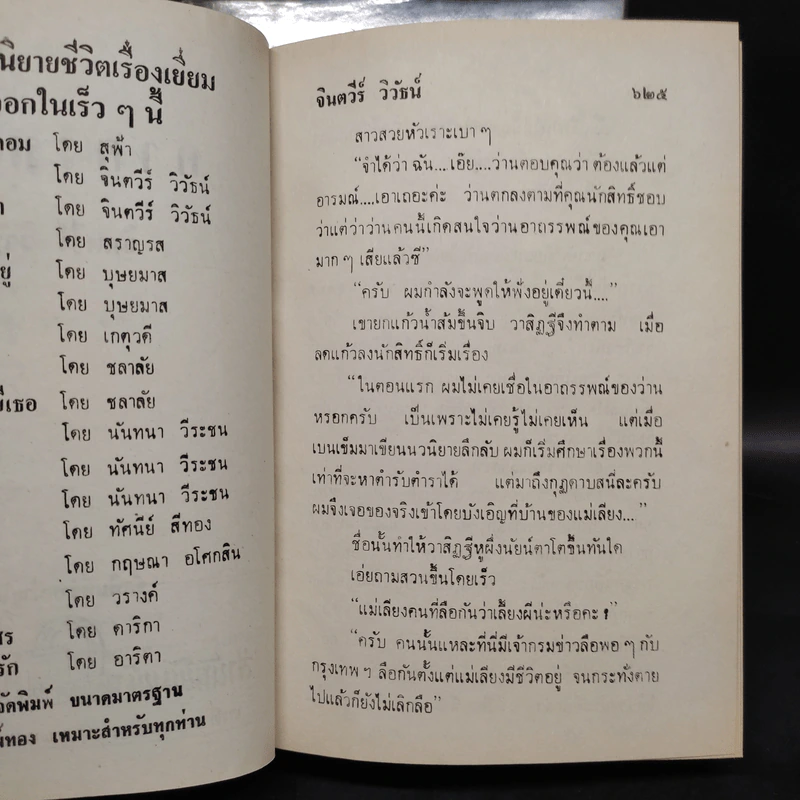 นิยายชีวิตเรื่องเยี่ยม
ออกในเร็ว ๆ นี้
โดย สุฟ้า
โดย จินตวีร์ วิวัธน์
โดย จินตวีร์ วิวัธน์
โดย สราญรส
โดย บุษยมาส
โดย บุษยมาส
โดย เกตุวดี
โดย ชลาลัย
โดย ชลาลัย
โดย นันทนา วีระชน
โดย นันทนา วีระชน
โดย นันทนา วีระชน
โดย ทัศนีย์ สีทอง
โดย กฤษณา อโศกสิน
โดย วรางค์
โดย ดาริกา
โดย อาริตา
จัดพิมพ์ ขนาดมาตรฐาน
เหมาะสำหรับทุกท่าน
จินตวีร์ วิวัธน์ ๖๒๕
สาวสวยหัวเราะเบา ๆ
“จำได้ว่า ฉัน... เอ๊ย....ว่านตอบคุณว่า ต้องแล้วแต่
อารมณ์....เอาเถอะค่ะ ว่านตกลงตามที่คุณนักสิทธิ์ชอบ
ว่าแต่ว่าว่านคนนี้เกิดสนใจว่านอาถรรพณ์ของคุณเอา
มาก ๆ เสียแล้วซี”
“ครับ ผมกำลังจะพูดให้ฟังอยู่เดี๋ยวนี้....”
เขายกแก้วน้ำส้มขึ้นจิบ วาสิฏฐีจึงทำตาม เมื่อ
ลดแก้วลงนักสิทธิ์ก็เริ่มเรื่อง
“ในตอนแรก ผมไม่เคยเชื่อในอาถรรพณ์ของว่าน
หรอกครับ เป็นเพราะไม่เคยรู้ไม่เคยเห็น แต่เมื่อ
เบนเข็มมาเขียนนวนิยายลึกลับ ผมก็เริ่มศึกษาเรื่องพวกนี้
เท่าที่จะหาตำรับตำราได้ แต่มาถึงกุฎดาบสนี่ละครับ
ผมจึงเจอของจริงเข้าโดยบังเอิญที่บ้านของแม่เลียง...”
ชื่อนั้นทำให้วาสิฏฐีหูผึ่งนัยน์ตาโตขึ้นทันใด
เอ่ยถามสวนขึ้นโดยเร็ว
“แม่เลียงคนที่ลือกันว่าเลี้ยงผีน่ะหรือคะ !”
“ครับ คนนั้นแหละที่นี่มีเจ้ากรมข่าวลือพอ ๆ กับ
กรุงเทพ ฯ ลือกันตั้งแต่แม่เลียงมีชีวิตอยู่ จนกระทั่งตาย
ไปแล้วก็ยังไม่เลิกลือ”